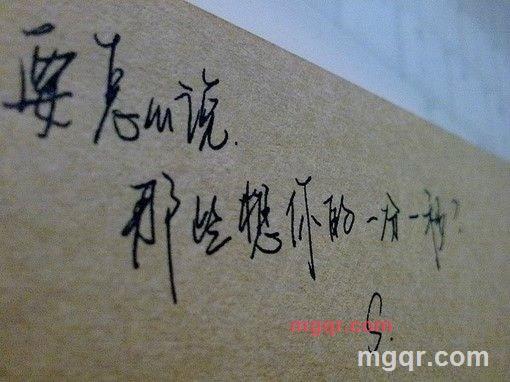 要怎么说.
那些想你的一分一秒?
S.
mgqr.com
mgqr.com